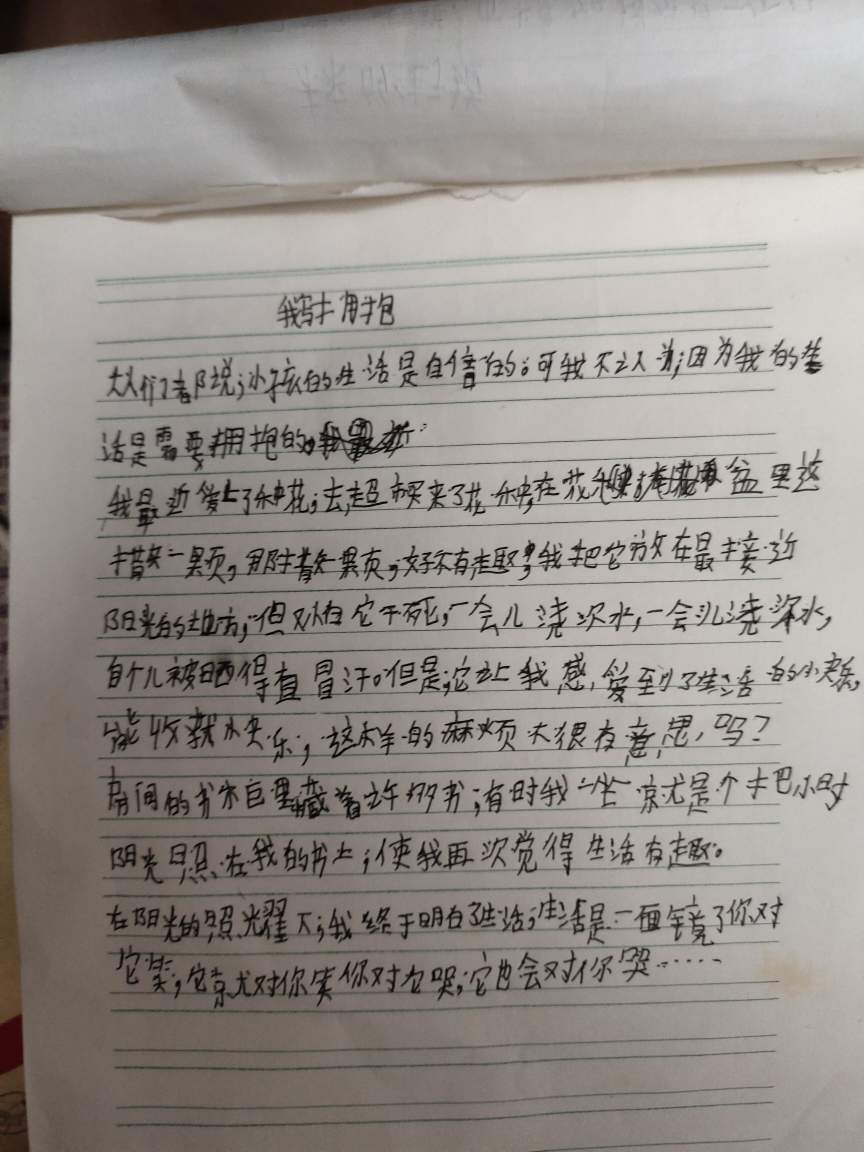 我与拥抱
大人们都说，小孩的生活是自信的。可我不这认为，因为我的生
活是需要拥抱的。
我最近爱上了种花，去超市买来了花种，在花盆里这
播一颗，那播一颗，好不有趣，我把它放在最接近
阳光的地方，但又怕它干死，一会儿浇次水，一会儿浇深水，
自个儿被晒得直冒汗。但是，它让我感爱到了生活的小快乐，
能收获小快乐，这样的麻烦不很有意思，吗？
房间的书柜里藏着许多书，有时我一坐就是个把小时
阳光照在我的书上，使我再次觉得生活有趣。
在阳光的照耀下，我终于明白了生活，生活是一面镜了你对
它笑，它就对你笑你对它哭，它也会对你哭……